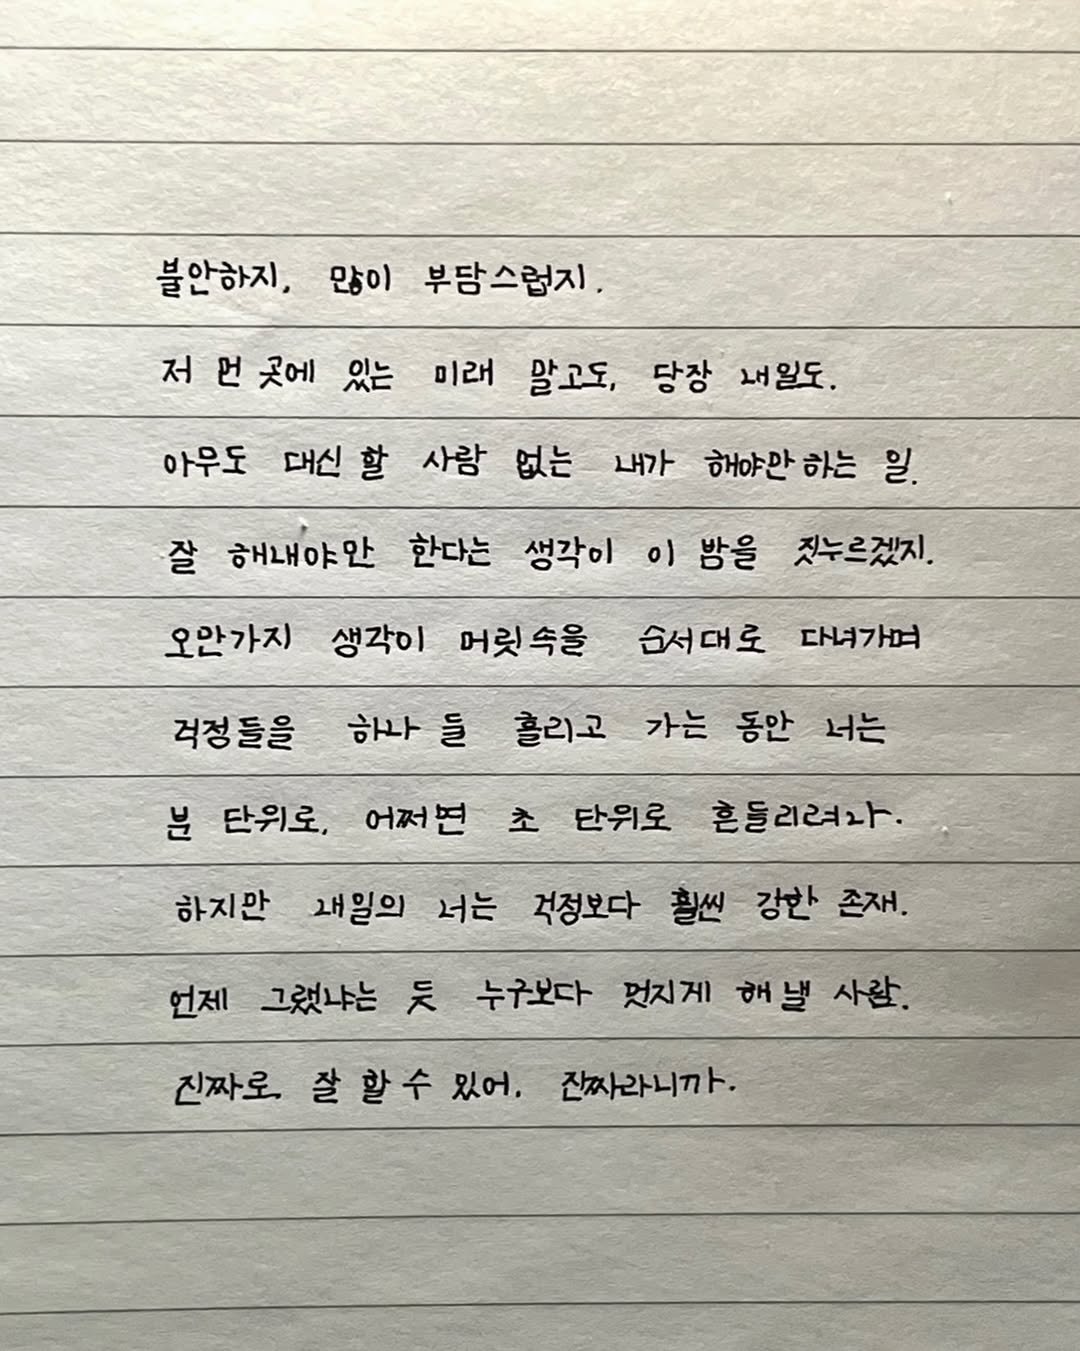 불안하지, 많이 부담스럽지.
저 먼 곳에 있는 미래 말고도, 당장 내일도.
아무도 대신 할 사람 없는 내가 해야만 하는 일.
잘 해내야만 한다는 생각이 이 밤을 짓누르겠지.
오만가지 생각이 머릿속을 순서대로 다녀가며
걱정들을 하나 둘 흘리고 가는 동안 너는
분 단위로, 어쩌면 초 단위로 흔들리려나.
하지만 내일의 너는 걱정보다 훨씬 강한 존재.
언제 그랬냐는 듯 누구보다 멋지게 해 낼 사람.
진짜로. 잘 할 수 있어. 진짜라니까.